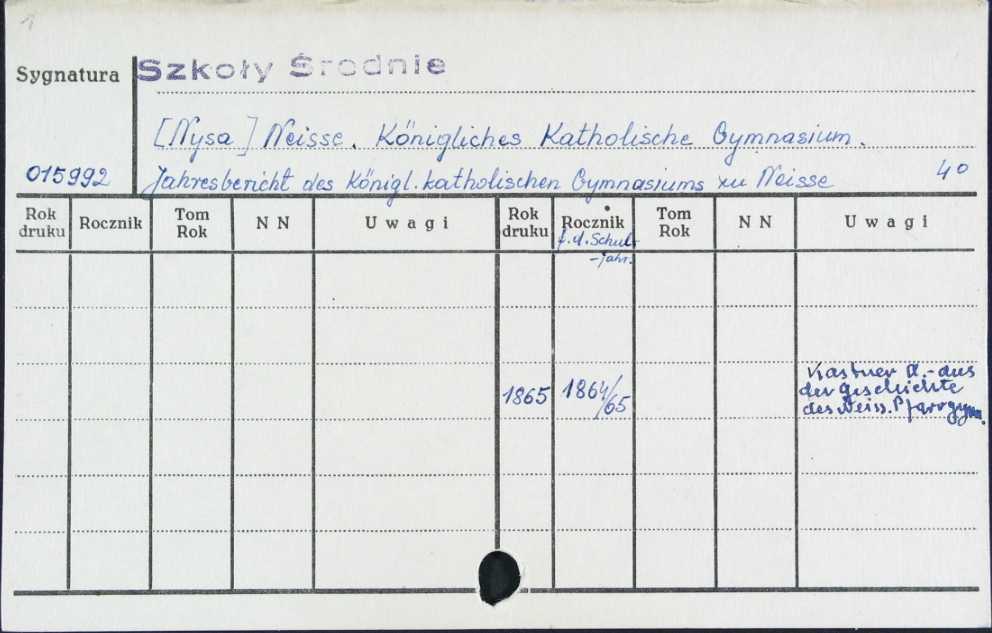 1
Szkoły Średnie
Sygnatura
[Nysa] Neisse. Königliches Katholische Gymnasium.
015992
Jahresbericht des Königl. katholischen Gymnasiums zu Neisse 4°
Rok druku Rocznik Tom Rok N N Uwagi Rok druku Rocznik Tom Rok N N Uwagi
f. d. Schul-
-jahr.
1865 1864/65
Kastner A. - aus
der Geschichte
des Neiss. Pfarrgym.